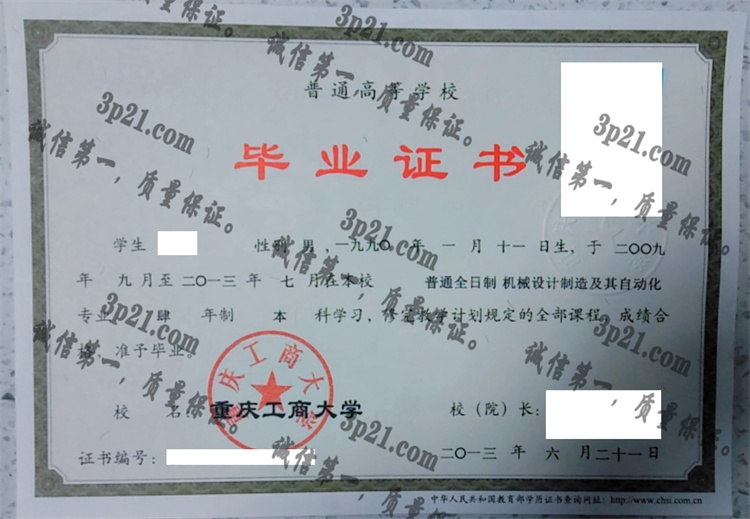 普通高等学校
毕业证书
学生 性别 男，一九九〇 年 一 月 十一 日生，于 二〇〇九
年 九 月至 二〇一三 年 七 月在本校 普通全日制 机械设计制造及其自动化
专业 肆 年制 本 科学习，修完教学计划规定的全部课程，成绩合
格，准予毕业。
校 名：重庆工商大学
校（院）长：
证书编号：
二〇一三 年 六 月 二十一日
中华人民共和国教育部学历证书查询网址：http://www.chsi.com.cn
重庆工商大学
3p21.com
诚信第一，质量保证。
3p21.com
诚信第一，质量保证。
3p21.com
诚信第一，质量保证。
3p21.com
诚信第一，质量保证。
3p21.com
诚信第一，质量保证。
3p21.com
诚信第一，质量保证。
3p21.com
诚信第一，质量保证。
3p21.com